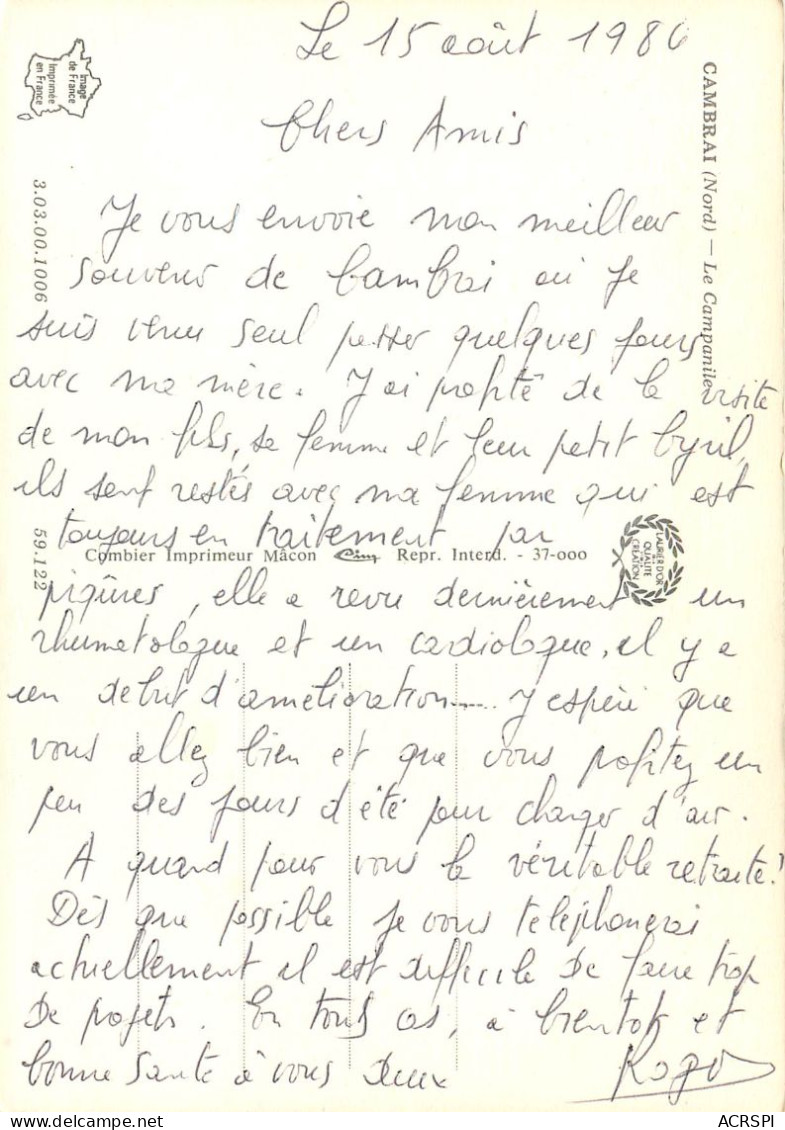 Le 15 août 1986
Chers Amis
Je vous envoie mon meilleur
souvenir de Cambrai où je
suis venu seul passer quelques jours
avec ma mère. J'ai profité de la visite
de mon fils, sa femme et leur petit Cyril,
ils sont restés avec ma femme qui est
toujours en traitement par
piqûres, elle a revu dernièrement un
rhumatologue et un cardiologue, il y a
un début d'amélioration..... J'espère que
vous allez bien et que vous profitez un
peu des jours d'été pour changer d'air.
A quand pour vous la véritable retraite?
Dès que possible je vous téléphonerai
actuellement il est difficile de faire trop
de projets. En tous cas, à bientôt et
bonne santé à vous deux
Roger
CAMBRAI (Nord) — Le Campanile
Image
de France
Imprimée
en France
3.03.00.1006
59.122
Combier Imprimeur Mâcon Cim Repr. Interd. - 37-000
LAURIER D'OR
DE LA
QUALITÉ
DE LA
CRÉATION
ACRSPI